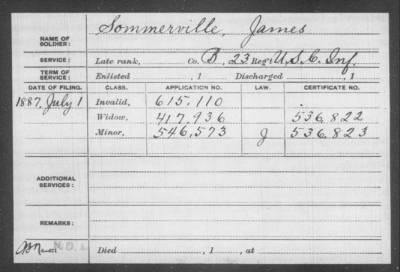 NAME OF SOLDIER: Sommerville, James
SERVICE: Late rank, Co. B, 23 Reg't U.S.C. Inf.
TERM OF SERVICE: Enlisted , 1 Discharged , 1
DATE OF FILING. CLASS. APPLICATION NO. LAW. CERTIFICATE NO.
1887, July 1 Invalid, 615,110 .
Widow, 417,936 536,822
Minor, 546,573 J 536,823
ADDITIONAL SERVICES:
REMARKS:
Died , 1 , at